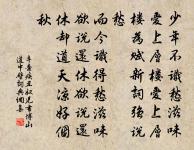 少年不識愁滋味
愛上層樓愛上層
樓為賦新詞強說
愁
而今識得愁滋味
欲說還休欲說還
休却道天涼好個
秋
辛棄疾丑奴兒書博山
道中壁詞